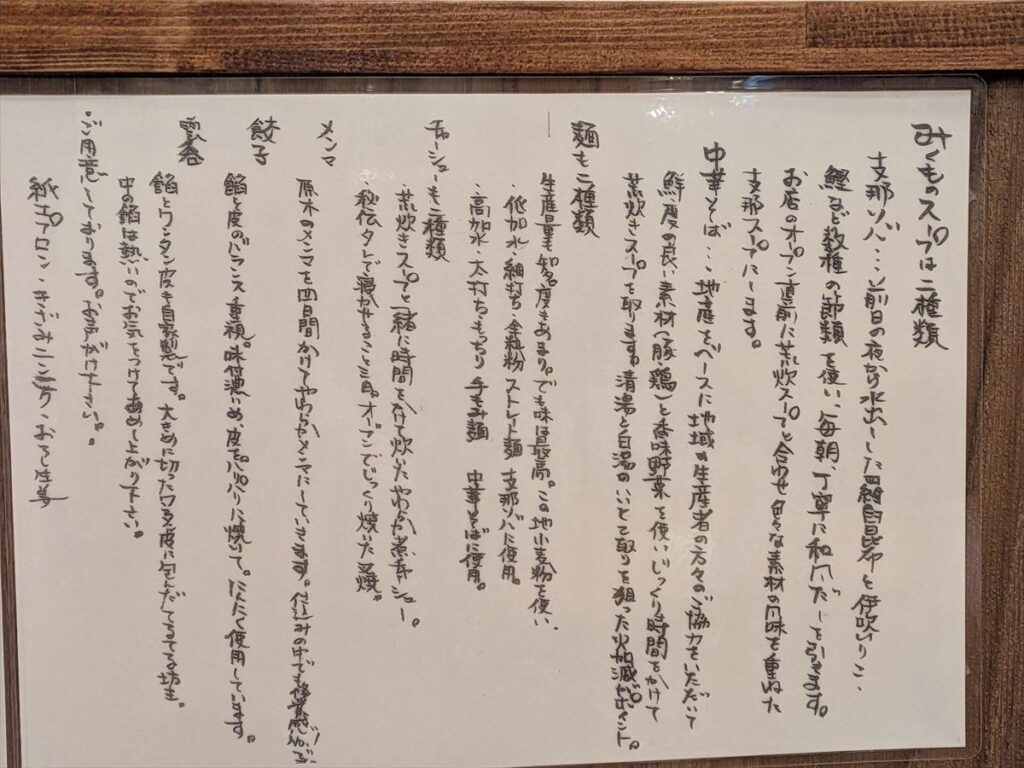 みくものスープは二種類
支那ソバ・・・前日の夜から水出しした羅臼昆布と伊吹いりこ、
鰹など数種の節類を使い、毎朝、丁寧に和ダシを引きます。
お店のオープン直前に荒炊スープと合わせ色々な素材の風味を重ねた
支那スープにします。
中華そば・・・地産をベースに地域の生産者の方々のご協力をいただいて
鮮度の良い素材(豚鶏)と香味野菜を使いじっくり時間をかけて
荒炊きスープを取ります。清湯と白湯のいいとこ取りを狙った火加減がポイント。
麺も二種類
生産量も知名度もあまり。でも味は最高。この地小麦粉を使い、
・低加水・細打ち・全粒粉 ストレート麺 支那ソバに使用。
・高加水・太打ち・もっちり 手もみ麺 中華そばに使用。
チャーシューも二種類
・荒炊きスープと一緒に時間をかけて炊いたやわらか煮チャーシュー。
・秘伝タレで寝かせること三日。オーブンでじっくり焼いた叉焼。
メンマ
原木のメンマを四日間かけてやわらかメンマにしていきます。仕込みの中でも
餃子
餡と皮のバランス重視。味付濃いめ、皮をパリパリに焼いて。なたね使用しています。
雲呑
餡とワンタン皮も自家製です。大きめに切ったワンタン皮に包んだてるてる坊主。
中の餡は熱いのでお気をつけてお召し上がり下さい。
・ご用意しております。お声がけ下さい。・
紙エプロン・きざみニンニク・おろし生姜